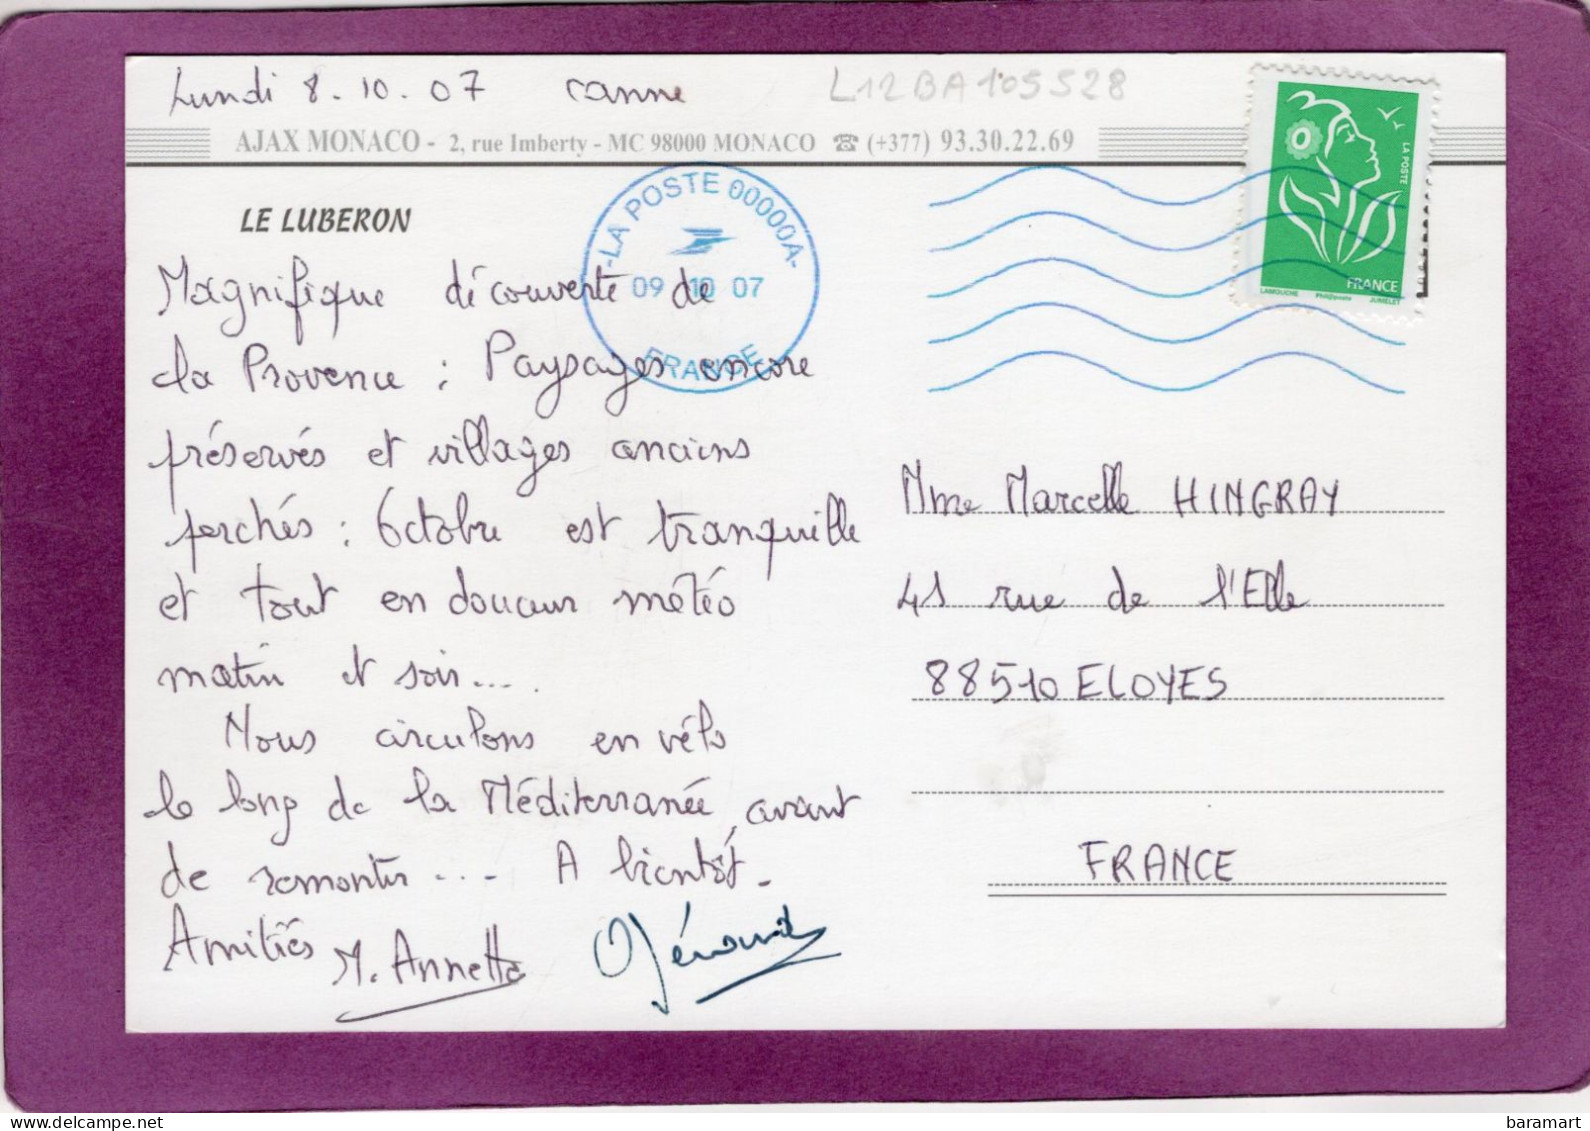 Lundi 8.10.07 Canne L12BA105528
AJAX MONACO - 2, rue Imberty - MC 98000 MONACO ☎ (+377) 93.30.22.69
LA POSTE
FRANCE
LAMOUCHE Phil@poste JUMELET
LE LUBERON
-LA POSTE 00000A-
09 10 07
FRANCE
Magnifique découverte de
la Provence : Paysages encore
préservés et villages anciens
perchés : Octobre est tranquille
et tout en douceur météo
matin et soir....
Nous circulons en vélo
le long de la Méditerranée, avant
de remonter.... A bientôt.
Amitiés M. Annette
Mme Marcelle HINGRAY
41 rue de l'Elle
88510 ELOYES
FRANCE
baramart